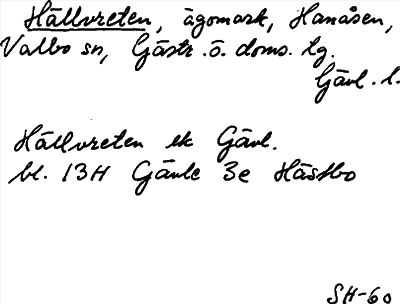 Hällvreten, ägomark, Hanåsen,
Valbo sn, Gästr. ö. doms. tg.
Gävl. l.
Hällvreten ek Gävl.
bl. 13H Gävle 3e Hästbo
SH-60